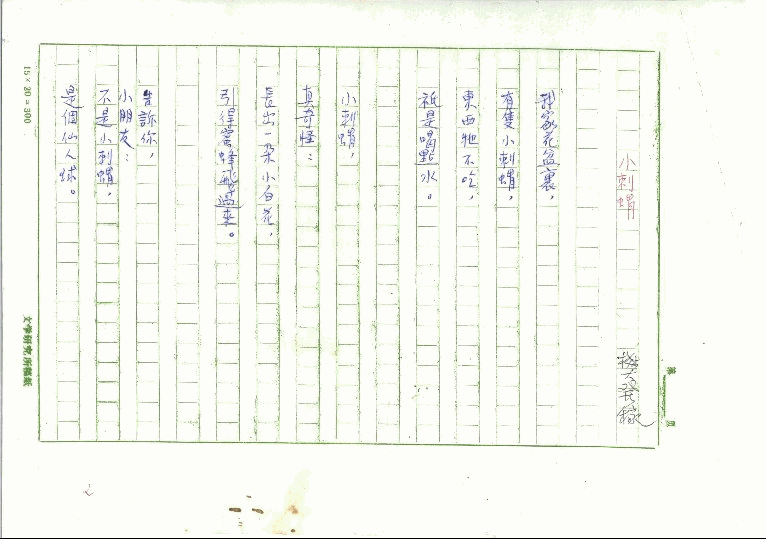 小刺蝟
我家花盆裏，
有隻小刺蝟，
東西牠不吃，
祇是喝點水。
小刺蝟，
真奇怪：
長出一朵小白花，
引得蜜蜂飛過來。
告訴你，
小朋友：
不是小刺蝟，
是個仙人球。
第 頁
15×20＝300
文学研究所稿紙